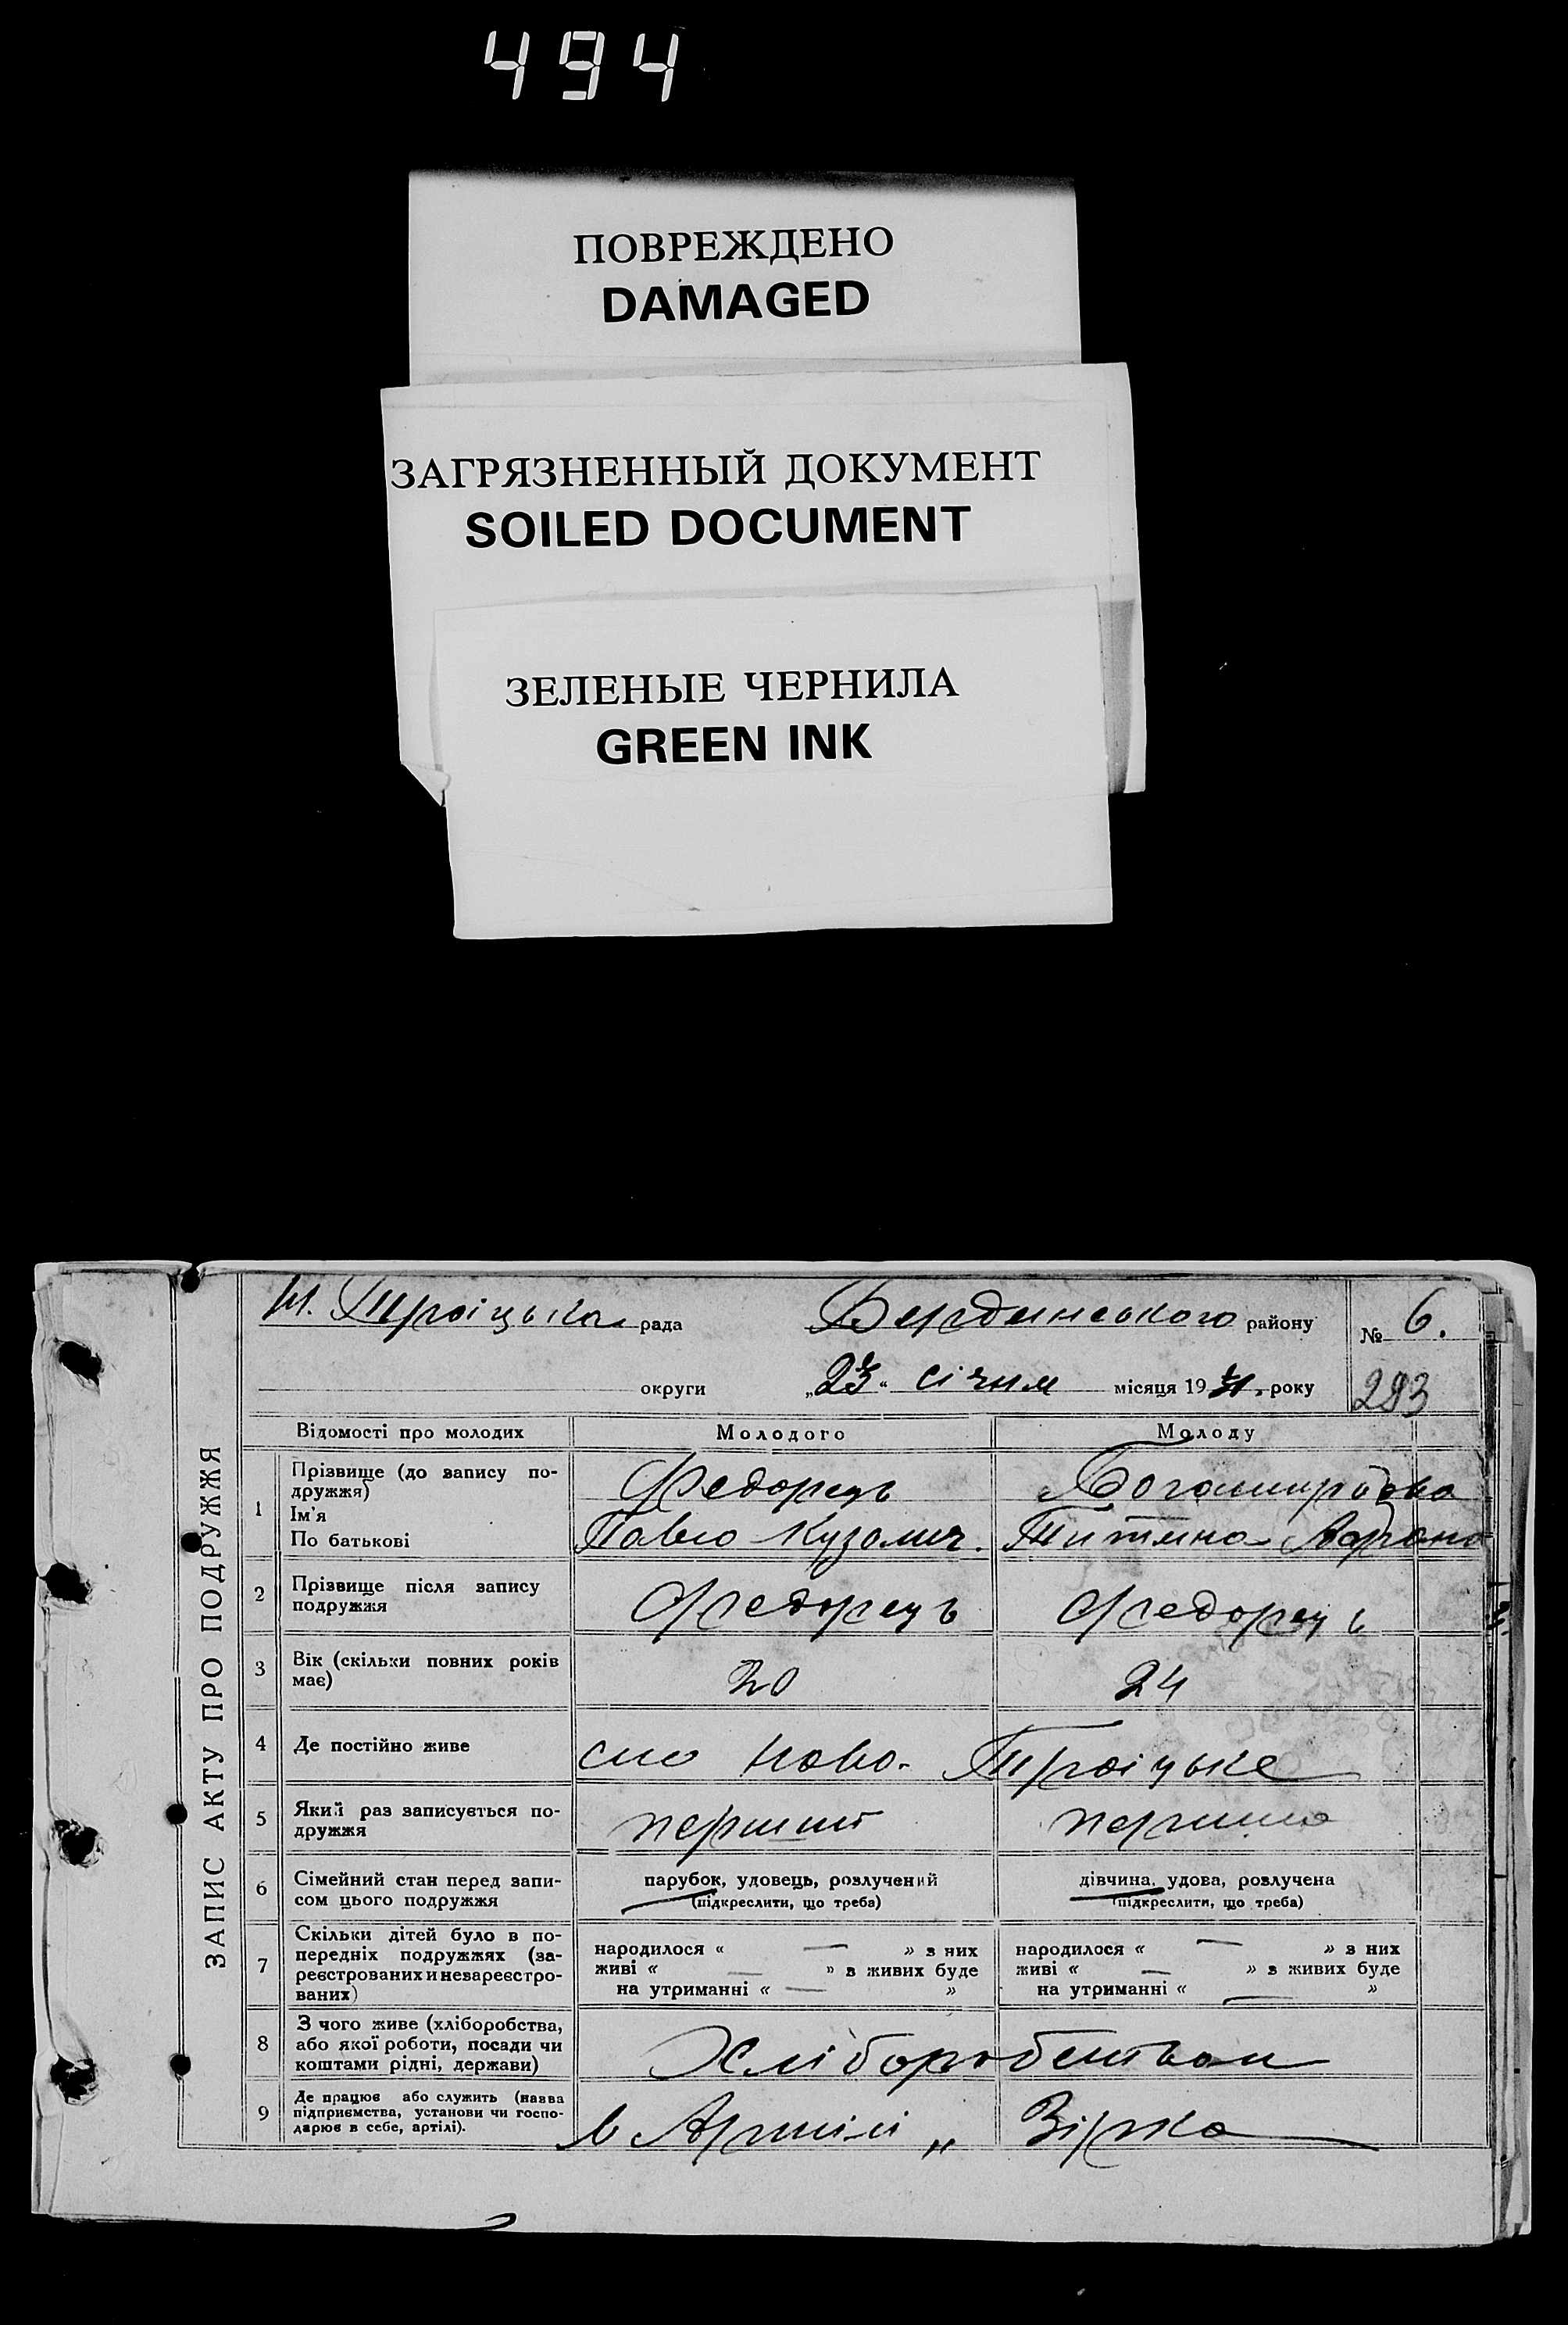 494
ПОВРЕЖДЕНО
DAMAGED
ЗАГРЯЗНЕННЫЙ ДОКУМЕНТ
SOILED DOCUMENT
ЗЕЛЕНЫЕ ЧЕРНИЛА
GREEN INK
ЗАПИС АКТУ ПРО ПОДРУЖЖЯ
Троіцька рада Бердянського району № 6.
округи „23“ січня місяця 1931 року 293
Відомості про молодих Молодого Молоду
1 Прізвище (до запису по-
дружжя) Федорець
Ім'я
По батькові Павло Кузьмич.
2 Прізвище після запису
подружжя Федорець Федорець
3 Вік (скільки повних років
має) 20 24
4 Де постійно живе село Ново-Троіцьке
5 Який раз записується по-
дружжя перший перший
6 Сімейний стан перед запи-
сом цього подружжя парубок, удовець, розлучений дівчина, удова, розлучена
(підкреслити, що треба) (підкреслити, що треба)
7 Скільки дітей було в по-
передніх подружжях (за-
реєстрованих и незареєстро-
ваних)
народилося « — » з них народилося « — » з них
живі « — » в живих буде живі « — » в живих буде
на утриманні « — » на утриманні « — »
8 З чого живе (хліборобства,
або якої роботи, посади чи
коштами рідні, держави) Хліборобством
9 Де працює або служить (назва
підприємства, установи чи госпо-
дарює в себе, артілі). в Артілі „Зірка